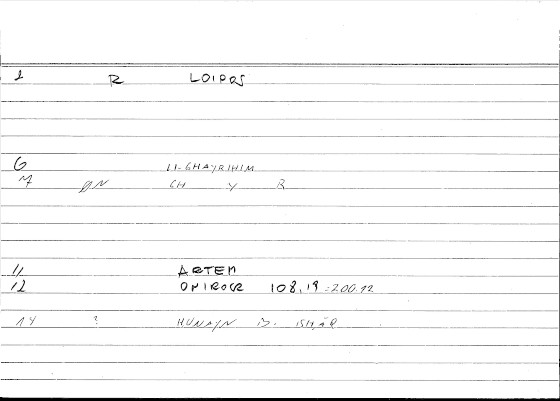 1 R LOIPOS
6 LI-GHAYRIHIM
7 PN GH Y R
11 ARTEM
12 ONIROCR 108,19 = 200.12
14 ? HUNAYN B. ISḤĀQ